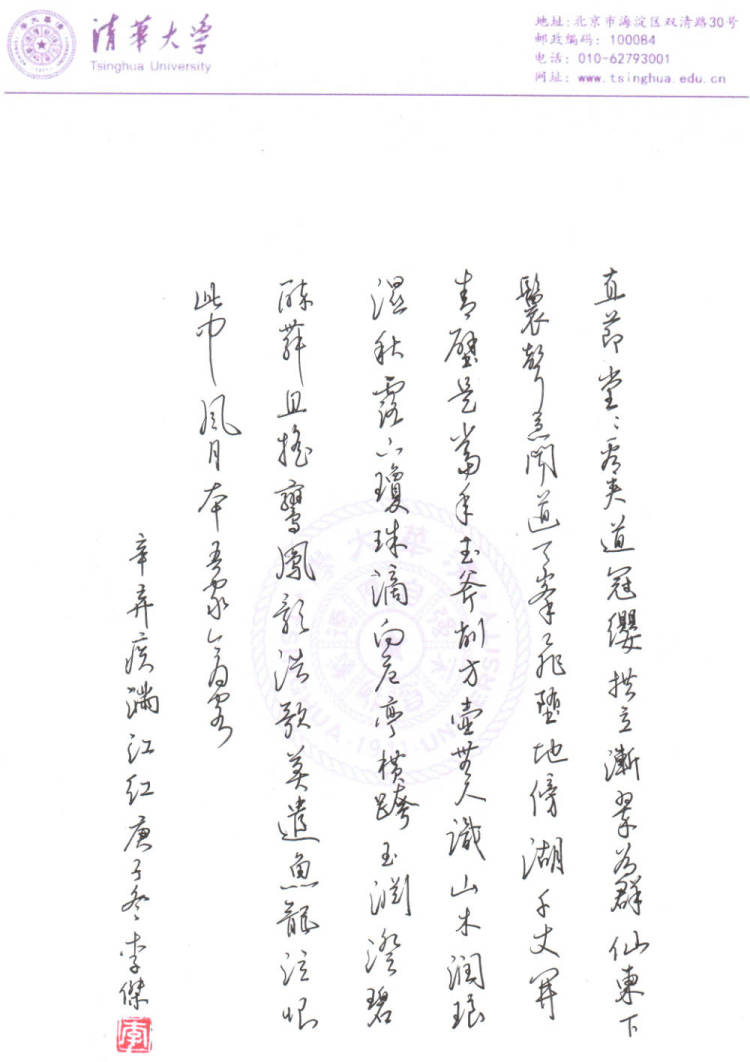 清華大学
Tsinghua University
地址:北京市海淀区双清路30号
邮政编码: 100084
电话: 010-62793001
网址: www.tsinghua.edu.cn
直節堂〻看夾道冠纓拱立漸翠谷群仙東下
鬟聲急聞道天峯飛墮地傍湖千丈開
青壁是當年玉斧削方壺無人識山木潤琅
濕秋露下瓊珠滴向危亭橫跨玉淵澄碧
醉舞且搖鸞鳳影浩歌莫遣魚龍泣恨
此中風月本吾家今為客
辛弃疾滿江红庚子冬李傑
李